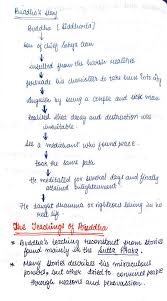 Buddha's Story
Buddha (Siddharta)
son of chief Sakya clan
sheltered from the harsh realities
persuade his charioteer to take him into city
anguish by seeing a corpse and sick man
realised that decay and destruction was
inevitable.
saw a mendicant who found peace.
took the same path
He meditated for several days and finally
attained Enlightenment
He taught dhamma or righteous living in his
next life
The Teachings of Buddha
Buddha's teaching reconstruct from stories
found mainly in the Sutta Pitaka.
Many stories describe his miraculous
powers but other tried to convince people
through reasons and persuasion.